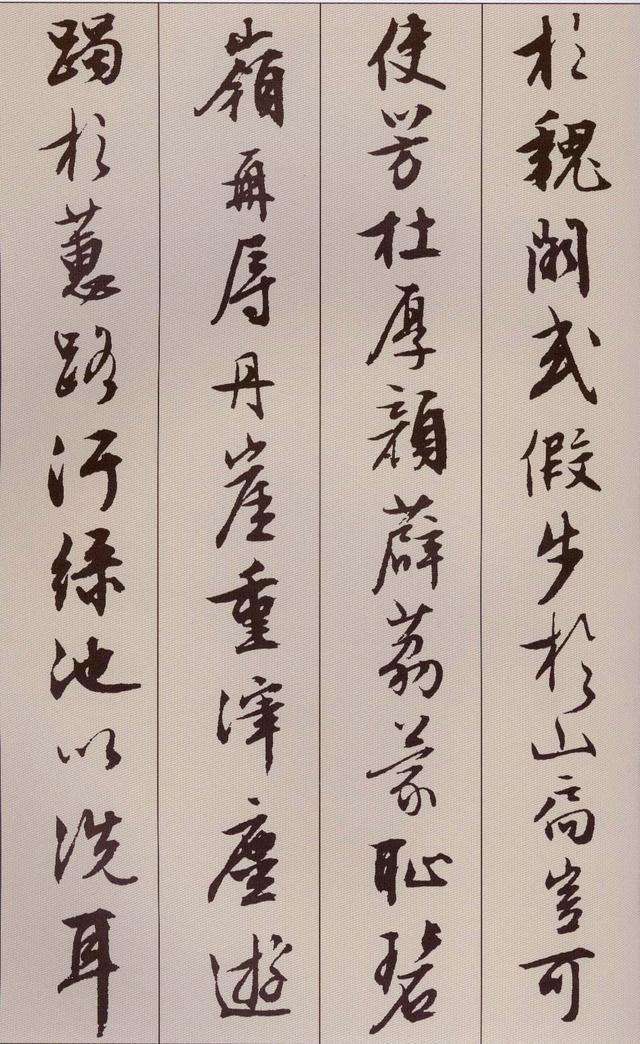 於魏闕或假步於山扃豈可
使芳杜厚顏薜荔蒙耻碧
嶺再辱丹崖重滓塵遊
躅於蕙路汙緑池以洗耳